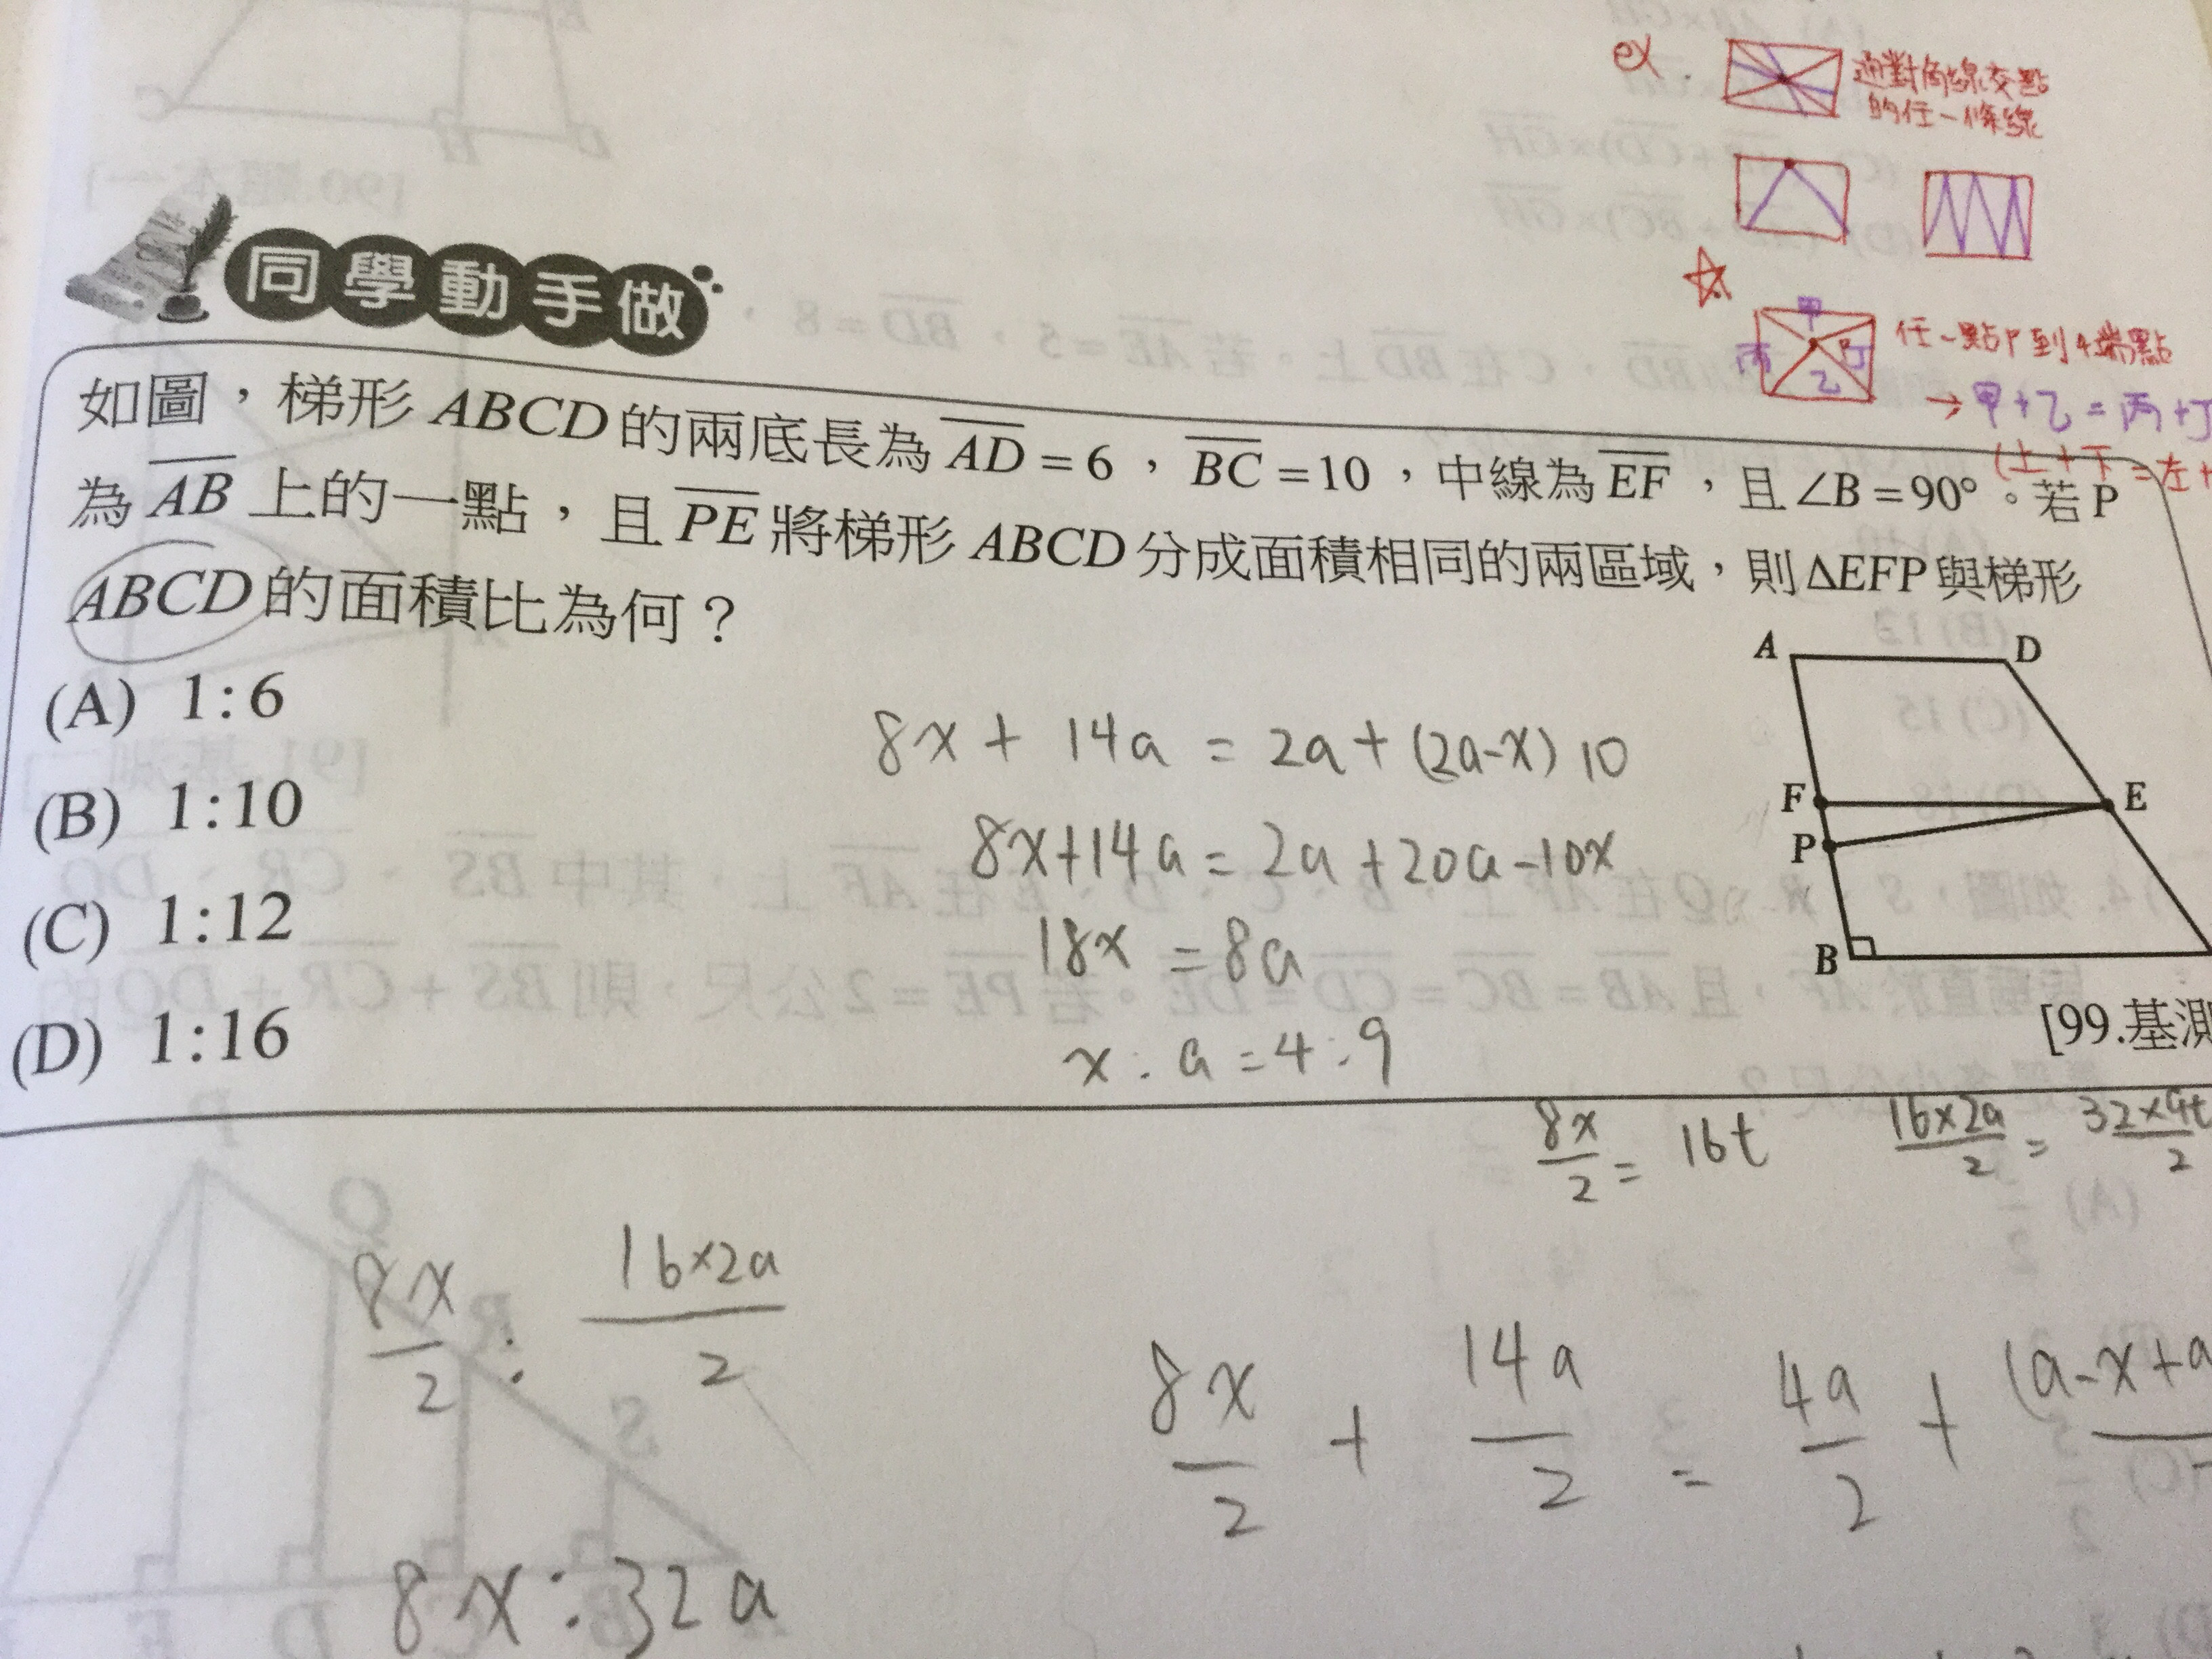 ex.
通對角線交點
的任一條線
任一點P到4端點
甲
丙
P
丁
乙
→ 甲+乙=丙+丁
(上+下=左+
同學動手做
如圖，梯形ABCD的兩底長為AD=6，BC=10，中線為EF，且∠B=90°。若P
為AB上的一點，且PE將梯形ABCD分成面積相同的兩區域，則ΔEFP與梯形
ABCD的面積比為何？
(A) 1:6
(B) 1:10
(C) 1:12
(D) 1:16
A
D
F
E
P
B
[99.基測
8x + 14a = 2a + (2a-x) 10
8x+14a = 2a + 20a - 10x
18x = 8a
x : a = 4 : 9
8x/2 = 16t
16×2a/2 = 32×9t/2
8x/2 : 16×2a/2
8x : 32a
8x/2 + 14a/2 = 4a/2 + (a-x+a